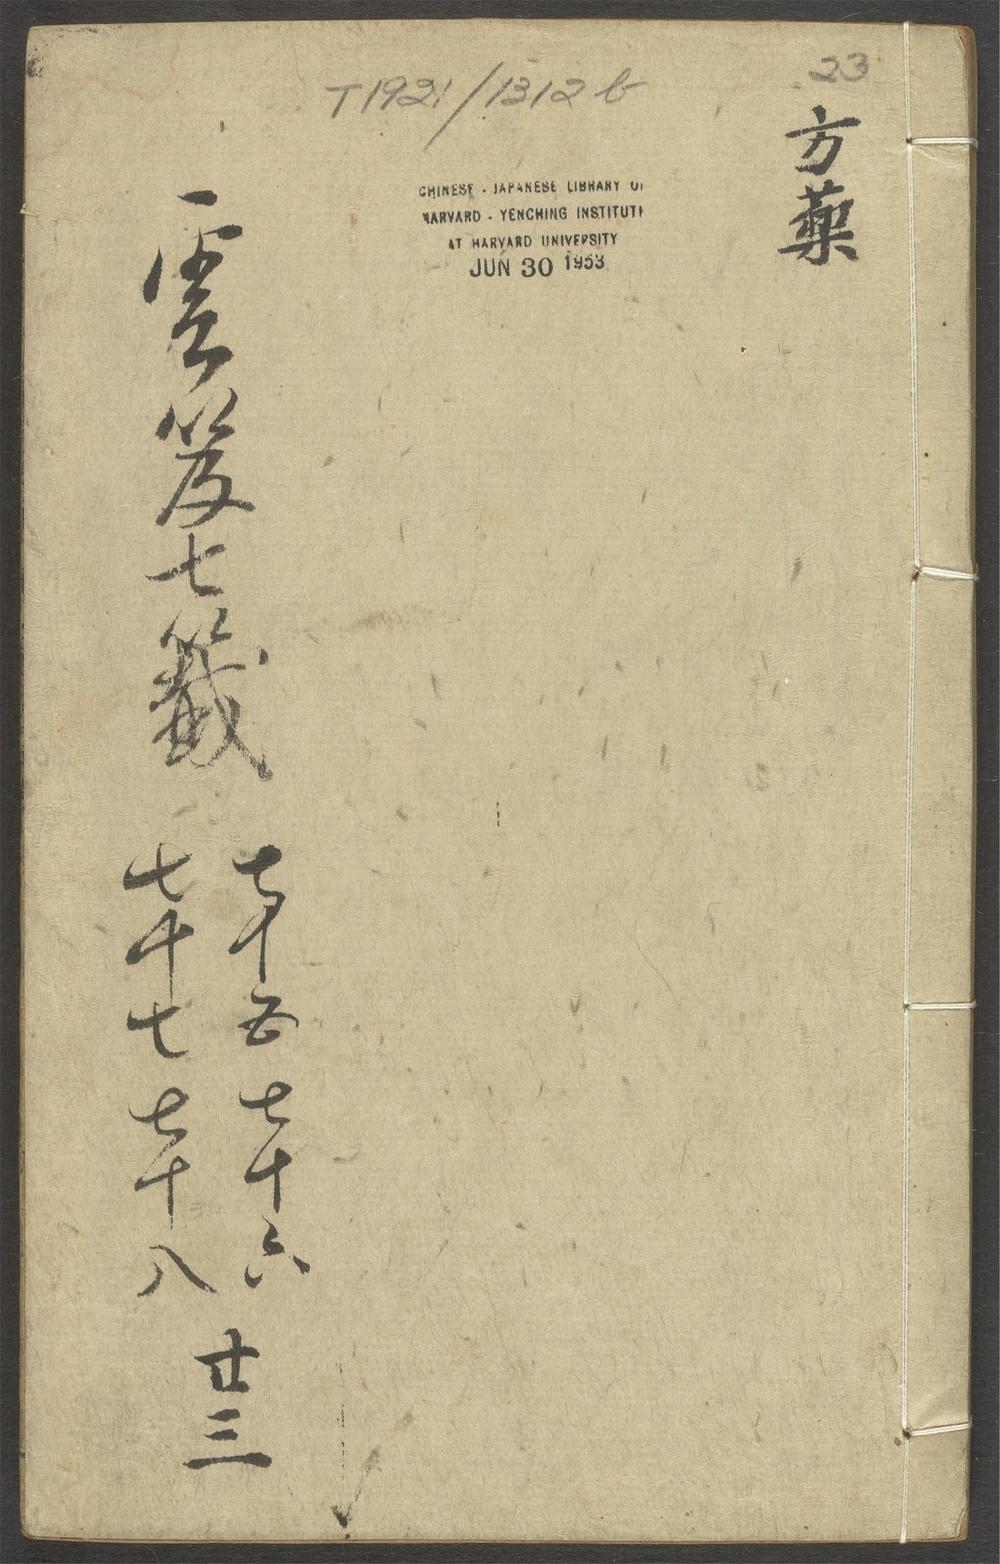 23
T1921/1312 b
CHINESE - JAPANESE LIBRARY OF
HARVARD - YENCHING INSTITUTE
AT HARVARD UNIVERSITY
JUN 30 1953
方藥
雲笈七籤
七十五 七十六
七十七 七十八
廿三